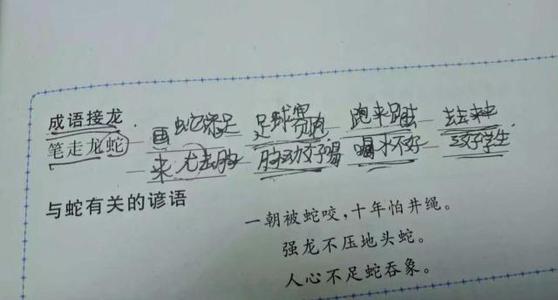 成语接龙 画蛇添足 足球赛跑 跑来跑去 去去来来
笔走龙蛇 来尢去胸 胸动了喝 喝水不好 好学生
与蛇有关的谚语
一朝被蛇咬，十年怕井绳。
强龙不压地头蛇。
人心不足蛇吞象。